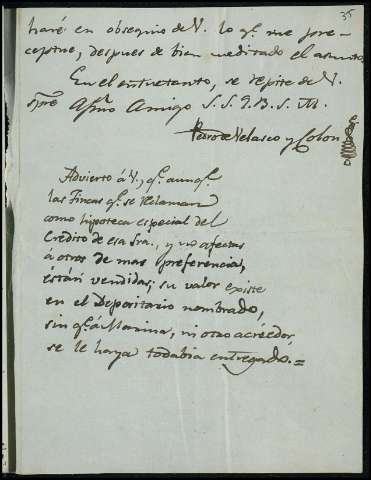 35
haré en obsequio de V. lo q.e me pre-
ceptue, despues de bien meditado el asunto.
En el entretanto, se repite de V.
spre Afmo Amigo S. S. Q. B. S. M.
Pedro de Velasco y Colon
Advierto á V., q.e aunq.e
las Fincas q.e se reclaman
como hipoteca especial del
Credito de esa Sra., y no afectas
á otros de mas preferencia,
están vendidas; su valor existe
en el Depositario nombrado,
sin q.e á Marina, ni otro acréedor,
se le haya todabia entregado.=